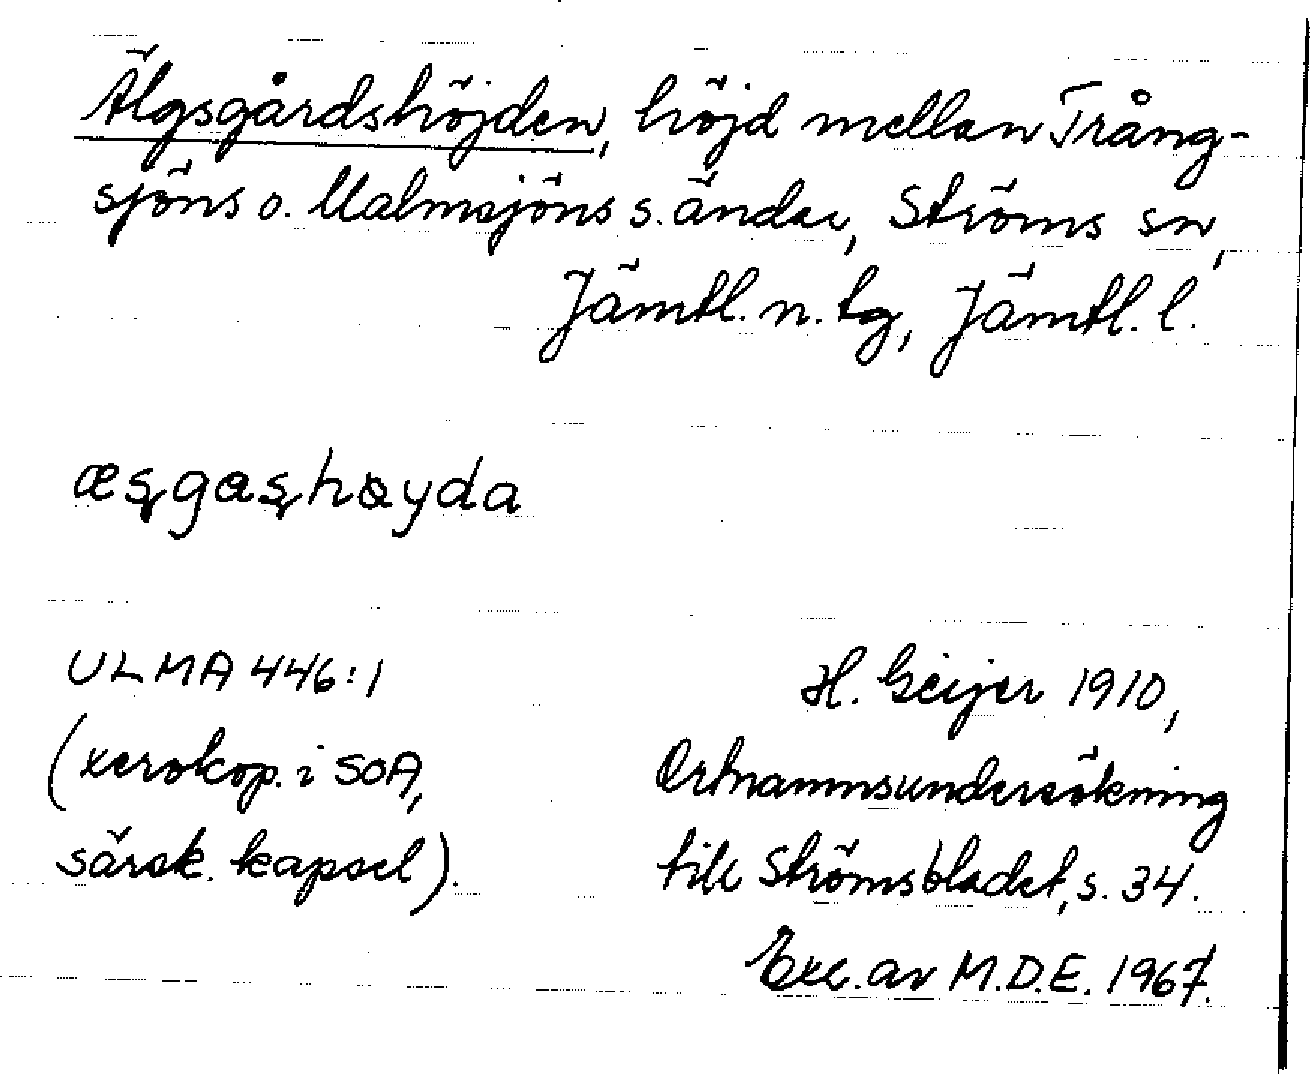 Älgsgårdshöjden, höjd mellan Trång-
sjöns o. Malmsjöns s. ändar, Ströms sn,
Jämtl. n. tg, Jämtl. l.
æʂgaʂhɑyda
ULMA 446:1
(xerokop. i SOA,
särsk. kapsel).
H. Geijer 1910,
Ortnamnsundersökning
till Strömsbladet, s. 34.
Exc. av M.D.E. 1967.